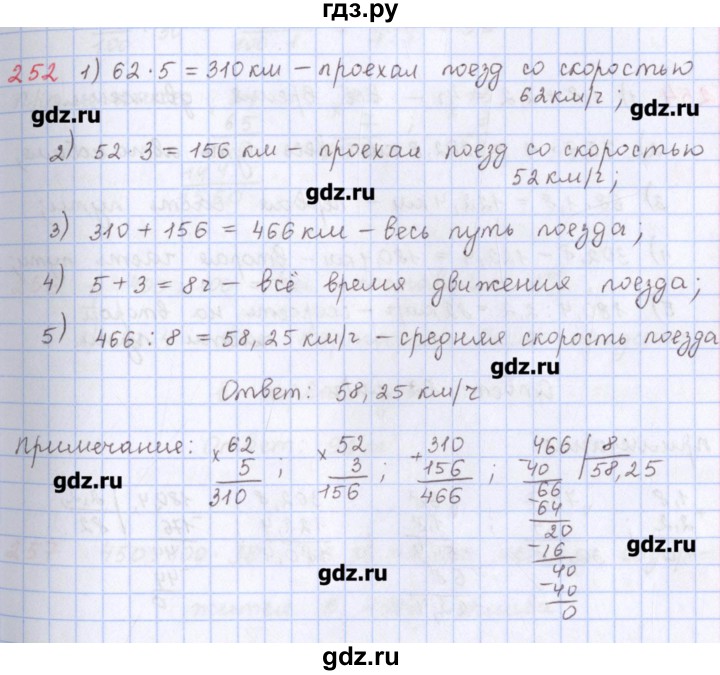 гдз.ру
252 1) 62 · 5 = 310 км – проехал поезд со скоростью
62 км/ч;
gdz.ru
2) 52 · 3 = 156 км – проехал поезд со скоростью
52 км/ч;
gdz.ru
3) 310 + 156 = 466 км – весь путь поезда;
4) 5 + 3 = 8 ч – всё время движения поезда;
5) 466 : 8 = 58,25 км/ч – средняя скорость поезда
gdz.ru
Ответ: 58,25 км/ч
Примечание: × 62 ; × 52 ; + 310 ; 466 | 8
5 3 156 – 40 58,25
310 156 466 66
gdz.ru
– 64
20
– 16
gdz.ru
40
gdz.ru
– 40
0
gdz.ru